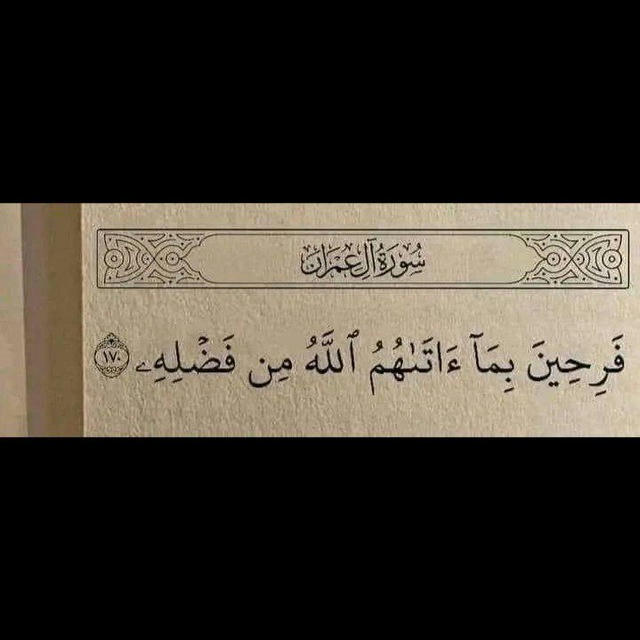 سُورَةُ آلِ عِمۡرَان
فَرِحِينَ بِمَآ ءَاتَىٰهُمُ ٱللَّهُ مِن فَضۡلِهِۦ ١٧٠